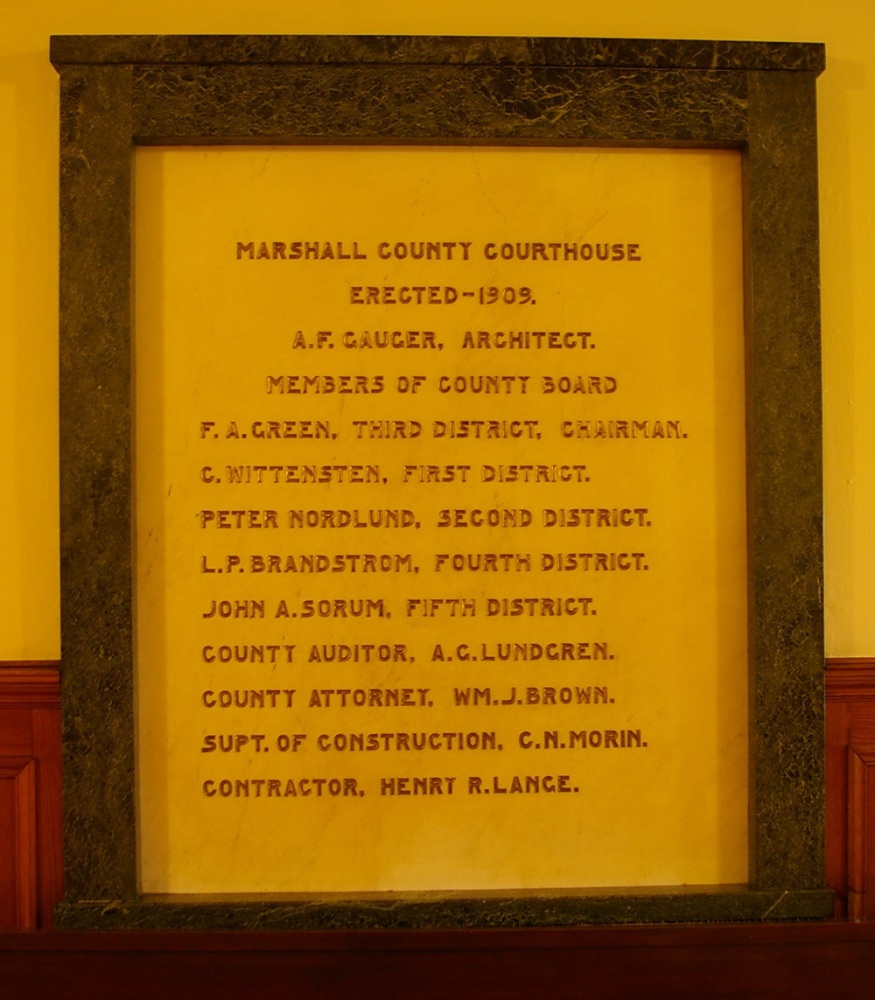 MARSHALL COUNTY COURTHOUSE
ERECTED-1909.
A.F. GAUGER, ARCHITECT.
MEMBERS OF COUNTY BOARD
F. A. GREEN, THIRD DISTRICT, CHAIRMAN.
C. WITTENSTEN, FIRST DISTRICT.
PETER NORDLUND, SECOND DISTRICT.
L.P. BRANDSTROM, FOURTH DISTRICT.
JOHN A. SORUM, FIFTH DISTRICT.
COUNTY AUDITOR, A.G. LUNDGREN.
COUNTY ATTORNEY, WM. J. BROWN.
SUPT. OF CONSTRUCTION, C.N. MORIN.
CONTRACTOR, HENRY R. LANGE.